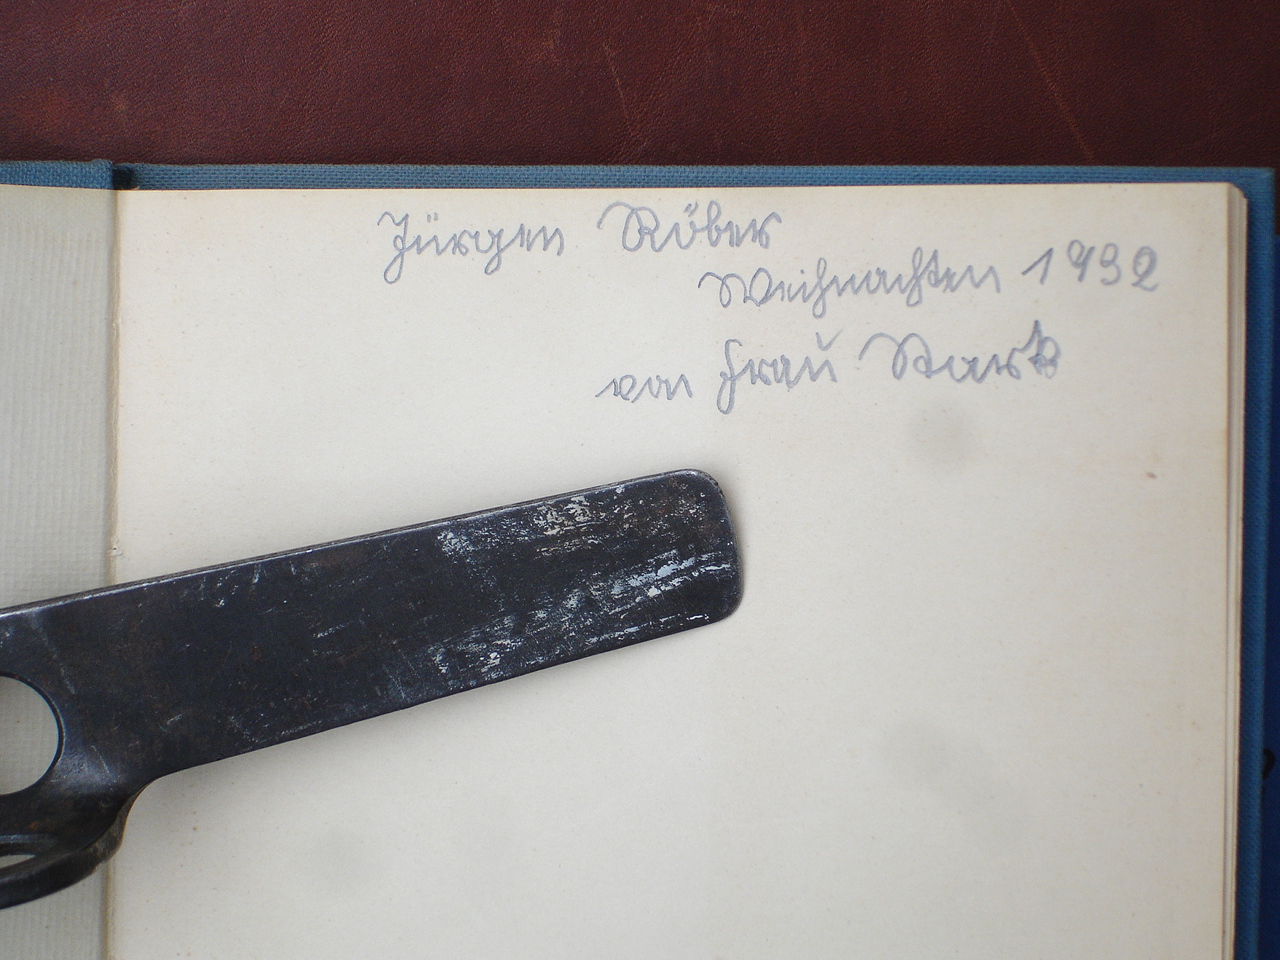 Jürgen Röber
Weihnachten 1932
von Frau